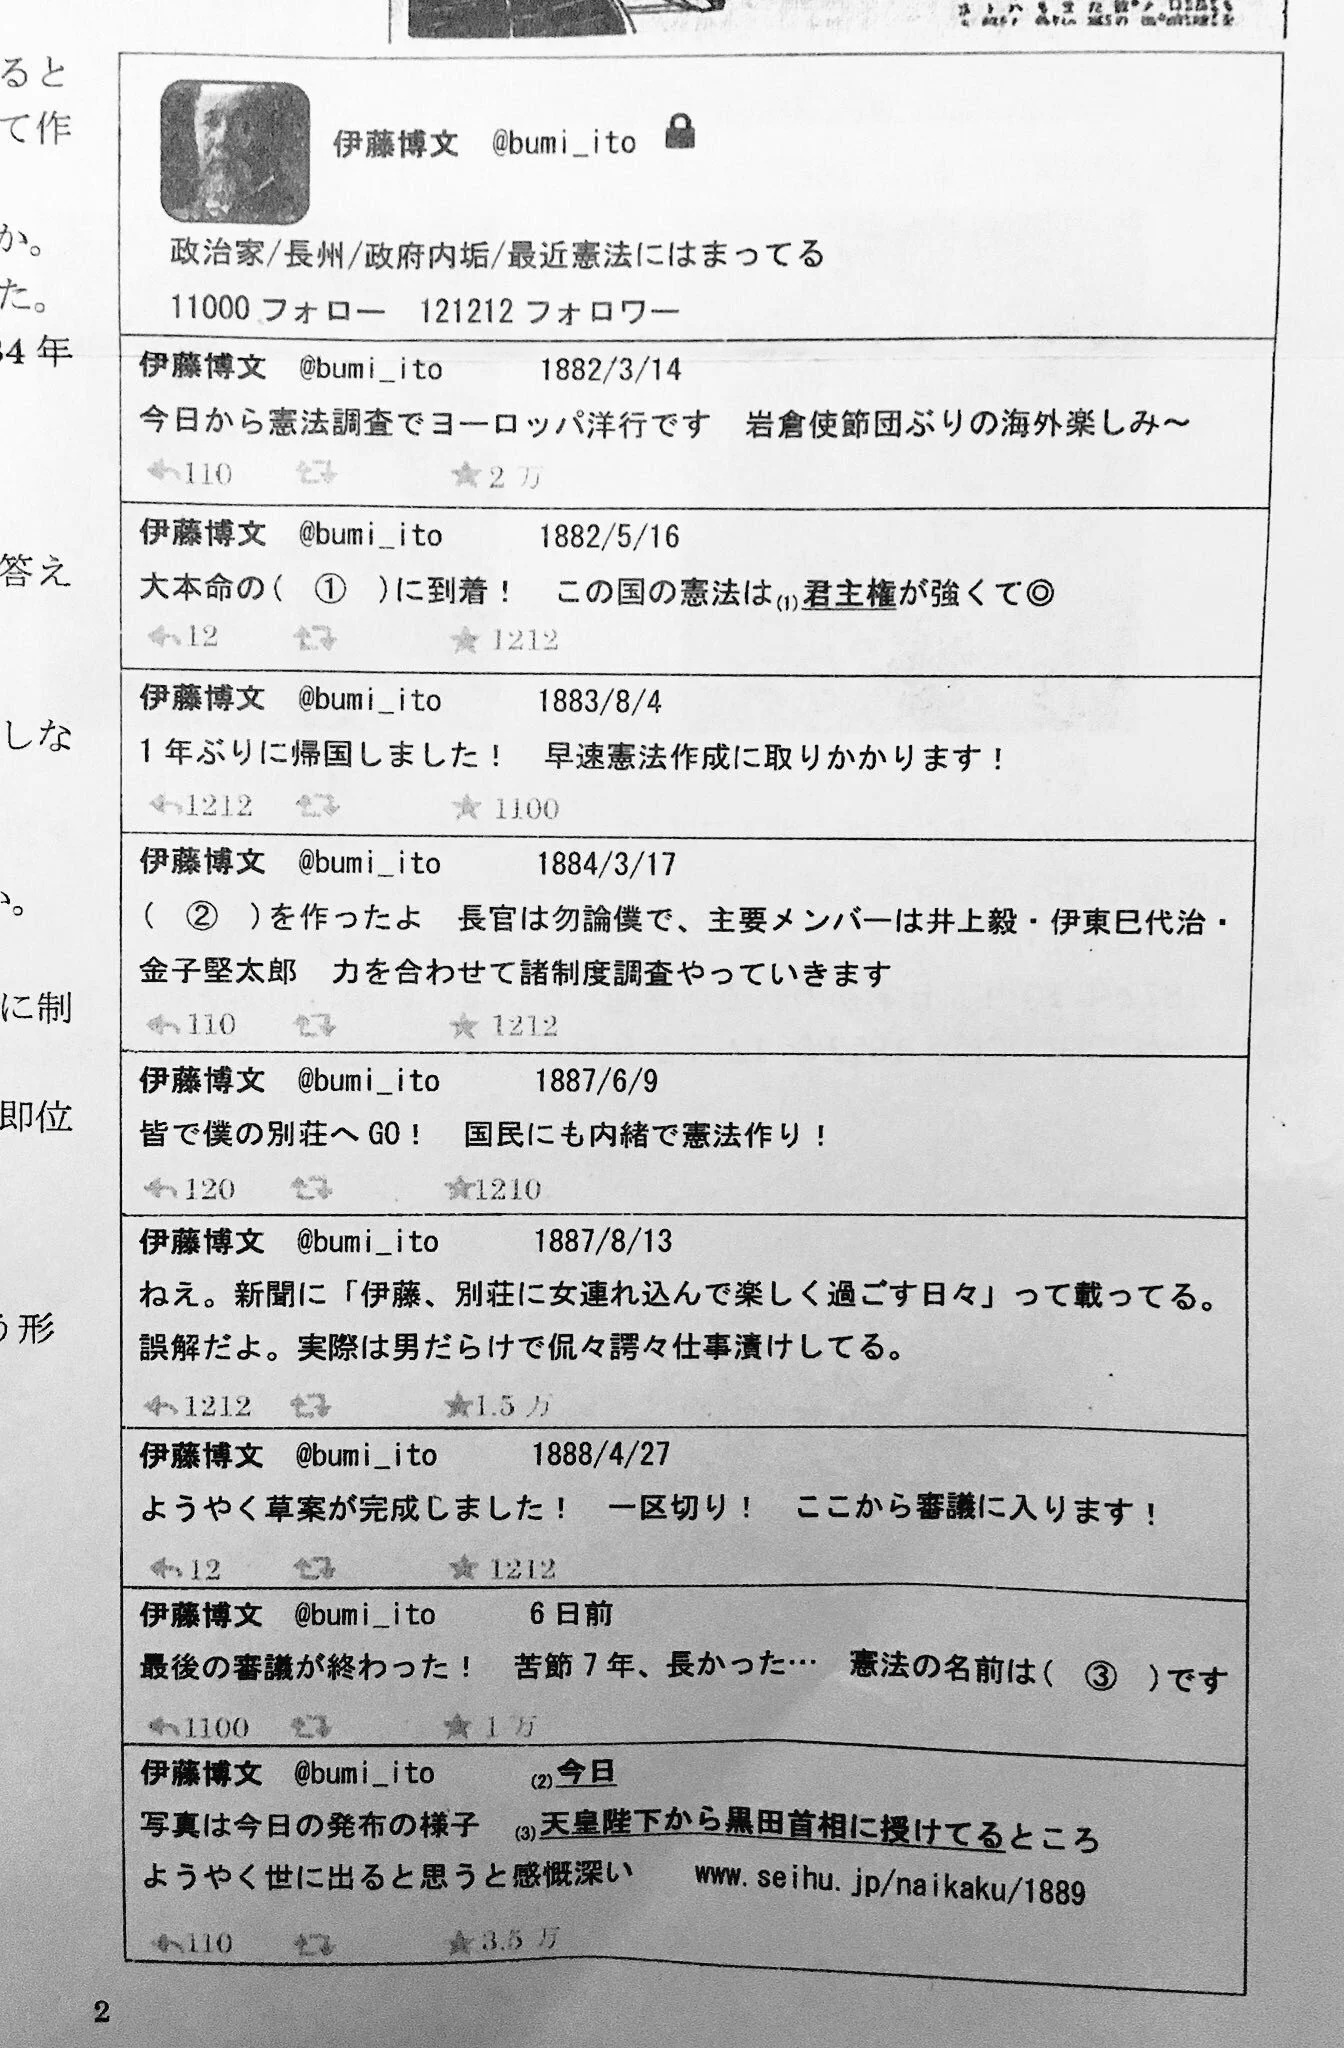 ると
て作
か。
た。
34年
答え
しな
か。
に制
即位
う形
伊藤博文　@bumi_ito
政治家/長州/政府内垢/最近憲法にはまってる
11000 フォロー　121212 フォロワー
伊藤博文　@bumi_ito　1882/3/14
今日から憲法調査でヨーロッパ洋行です　岩倉使節団ぶりの海外楽しみ～
110　2 万
伊藤博文　@bumi_ito　1882/5/16
大本命の(　①　)に到着！　この国の憲法は(1)君主権が強くて◎
12　1212
伊藤博文　@bumi_ito　1883/8/4
1 年ぶりに帰国しました！　早速憲法作成に取りかかります！
1212　1100
伊藤博文　@bumi_ito　1884/3/17
(　②　)を作ったよ　長官は勿論僕で、主要メンバーは井上毅・伊東巳代治・
金子堅太郎　力を合わせて諸制度調査やっていきます
110　1212
伊藤博文　@bumi_ito　1887/6/9
皆で僕の別荘へ GO！　国民にも内緒で憲法作り！
120　1210
伊藤博文　@bumi_ito　1887/8/13
ねえ。新聞に「伊藤、別荘に女連れ込んで楽しく過ごす日々」って載ってる。
誤解だよ。実際は男だらけで侃々諤々仕事漬けしてる。
1212　1.5 万
伊藤博文　@bumi_ito　1888/4/27
ようやく草案が完成しました！　一区切り！　ここから審議に入ります！
12　1212
伊藤博文　@bumi_ito　6 日前
最後の審議が終わった！　苦節 7 年、長かった…　憲法の名前は(　③　)です
1100　1 万
伊藤博文　@bumi_ito　(2)今日
写真は今日の発布の様子　(3)天皇陛下から黒田首相に授けてるところ
ようやく世に出ると思うと感慨深い　www.seihu.jp/naikaku/1889
110　3.5 万
2